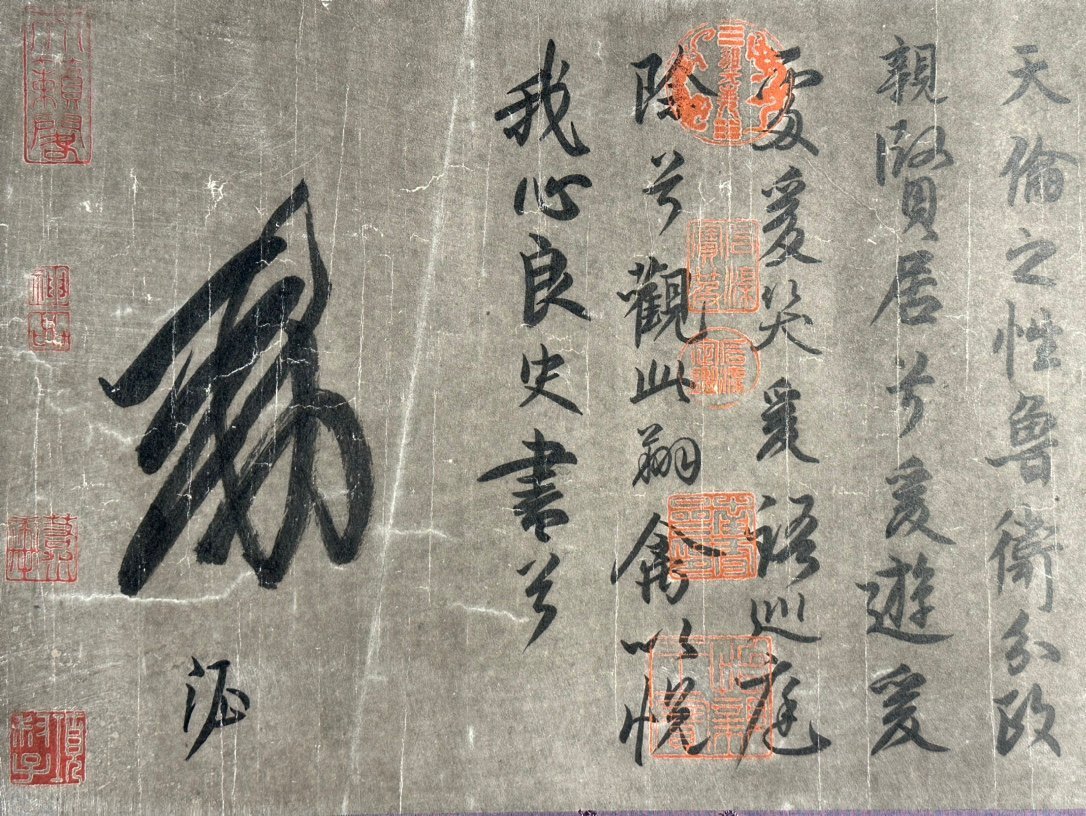 天倫之性魯衛分政
親賢居兮爰遊爰
處爰笑爰語巡庭
除兮觀此翔禽以悅
我心良史書兮
勅